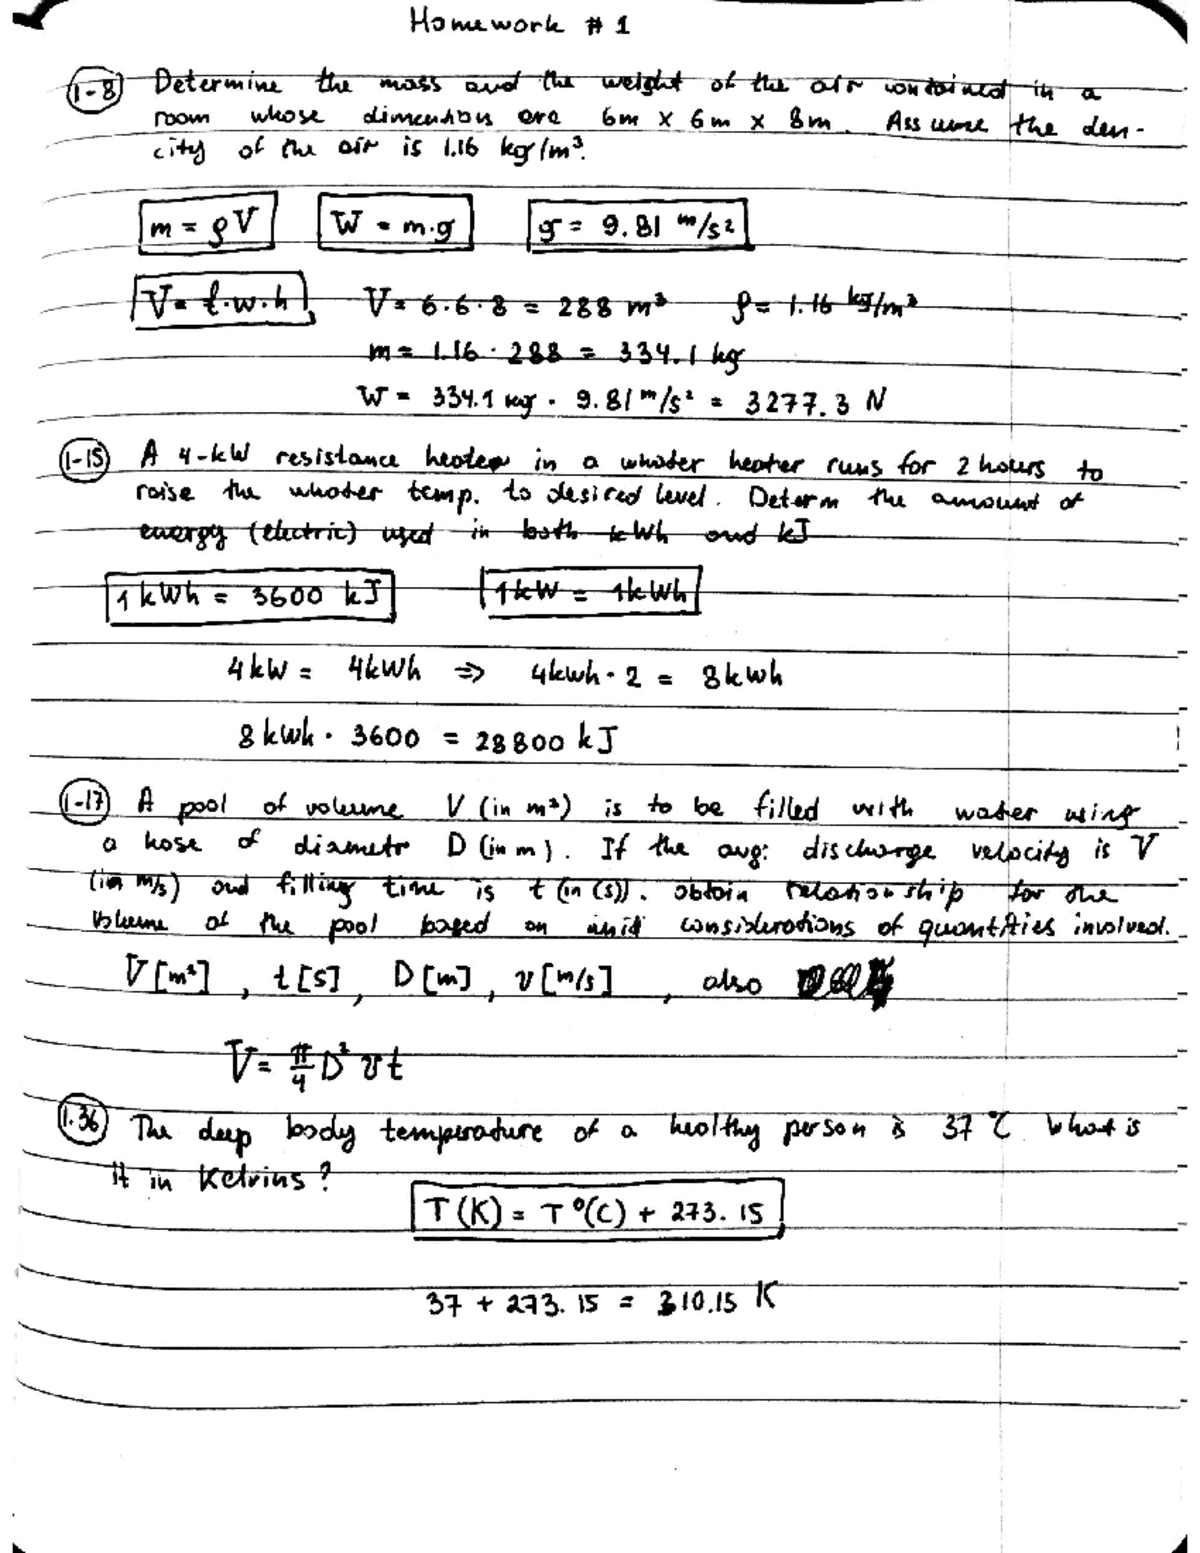 Homework # 1
1-8 Determine the mass and the weight of the air contained in a
room whose dimentions are 6m x 6m x 8m. Assume the den-
city of the air is 1.16 kg/m³.
m = ρV W = m·g g = 9.81 m/s²
V = l·w·h V = 6·6·8 = 288 m³ ρ = 1.16 kg/m³
m = 1.16 · 288 = 334.1 kg
W = 334.1 kg · 9.81 m/s² = 3277.3 N
1-15 A 4-kW resistance heater in a whater heater runs for 2 hours to
raise the whater temp. to desired level. Determ the amount of
energy (electric) used in both kWh and kJ
1 kWh = 3600 kJ 1kW = 1kWh
4kW = 4kWh ⇒ 4kwh · 2 = 8kwh
8 kwh · 3600 = 28800 kJ
1-17 A pool of volume V (in m³) is to be filled with water using
a hose of diametr D (in m). If the avg: discharge velocity is V
(in m/s) and filling time is t (in (s)). obtain relationship for the
volume of the pool based on unit considerations of quantities involved.
V [m³] , t [s] , D [m] , v [m/s] , also
V = π/4 D² v t
1.36 The deep body temperature of a healthy person is 37 °C. What is
it in Kelvins?
T (K) = T °(C) + 273.15
37 + 273.15 = 310.15 K